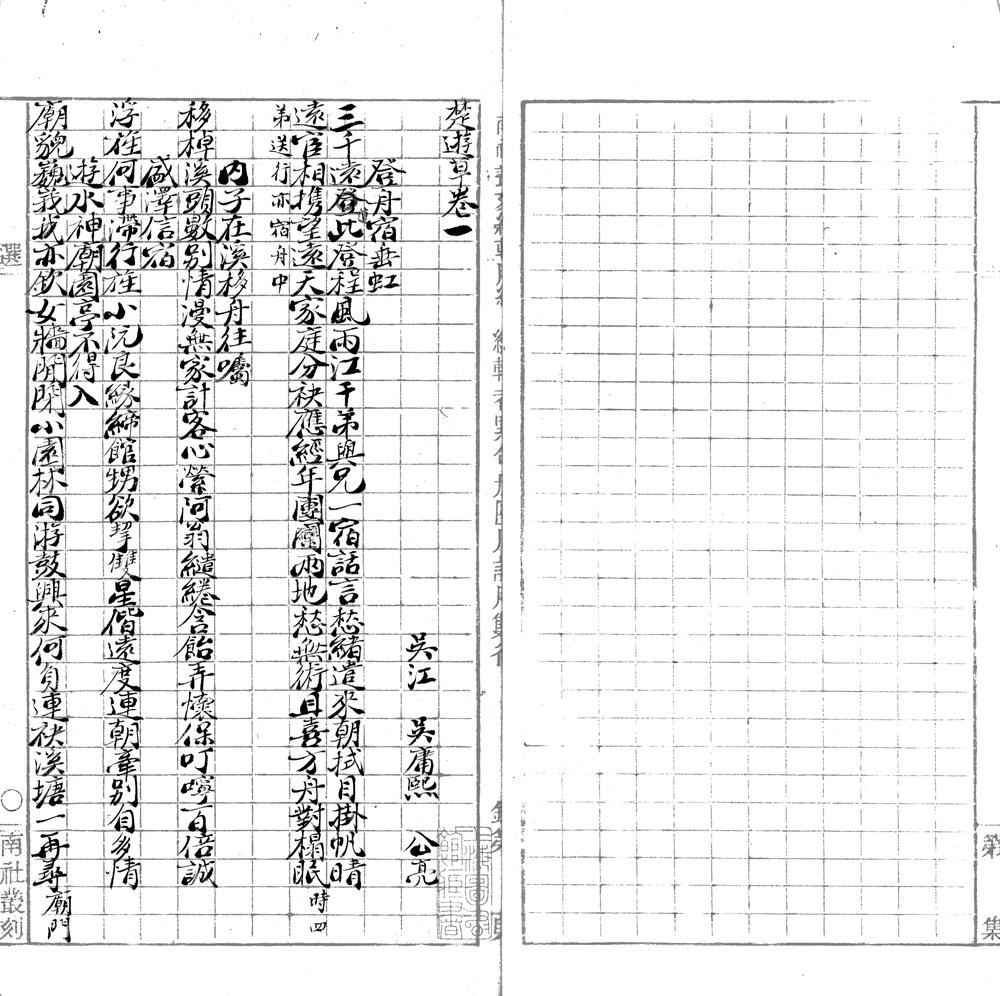 楚遊草卷一
吳江 吳庸熙 公亮
登舟宿垂虹
三千遠登此登程風雨江干弟與兄一宿話言愁緒遣來朝拭目掛帆晴
遠官相携望遠天家庭分袂應經年團圞兩地愁無術且喜方舟對榻眠時四
弟送行亦宿舟中
內子在溪移舟往囑
移棹溪頭數別情漫無家計客心縈阿翁繾綣含飴弄懷保叮嚀百倍誠
盛澤信宿
浮踪何事滯行旌小阮良緣締館甥欲挈雙星偕遠度連朝牽別自多情
遊水神廟園亭不得入
廟貌巍峩我亦欽女牆閒閉小園林同游鼓興來何負連袂溪塘一再尋廟門
選
○南社叢刻
集